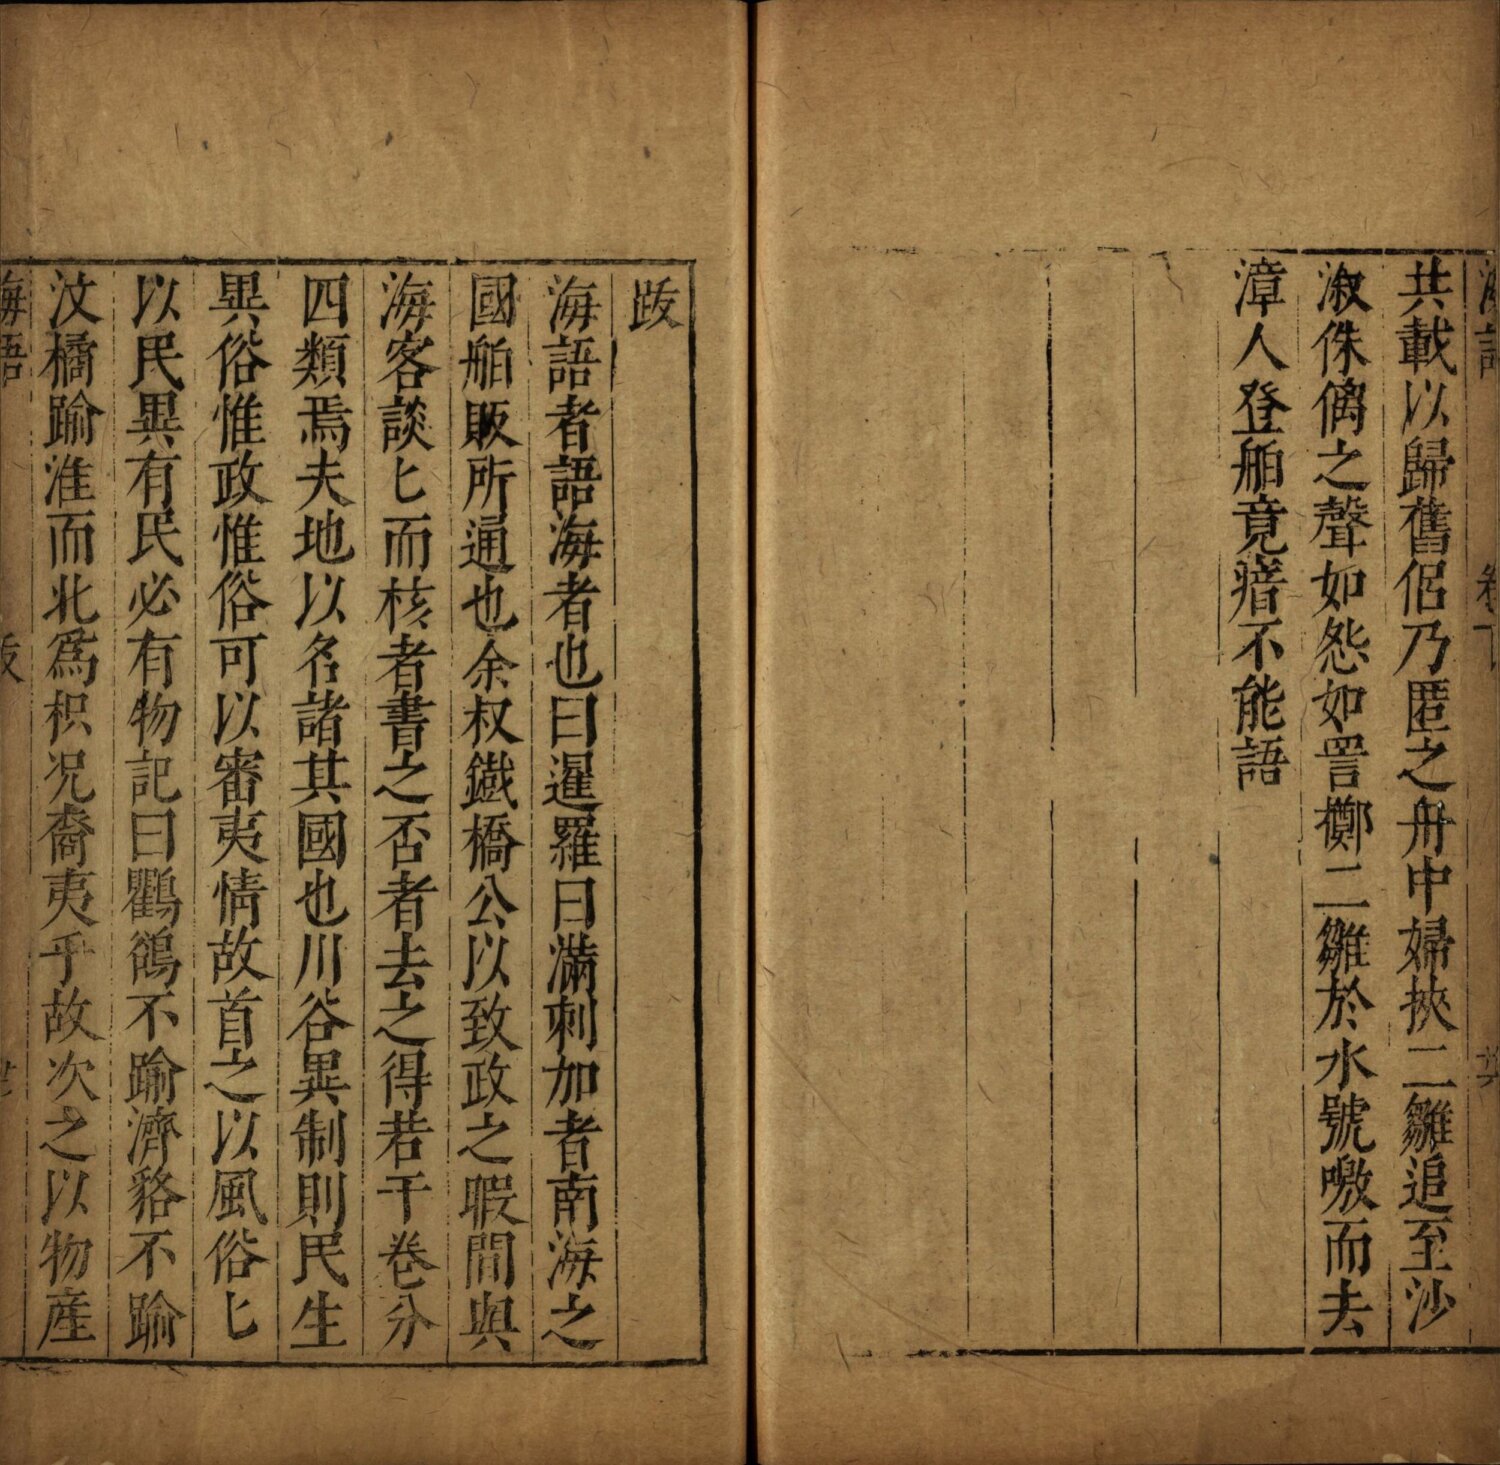 海語
卷下
共載以歸舊侶乃匿之舟中婦挾二雛追至沙
溆侏𠌯之聲如怨如詈擲二雛於水號噭而去
漳人登舶竟瘖不能語
跋
海語者語海者也曰暹羅曰滿刺加者南海之
國舶販所通也余叔鐵橋公以致政之暇間與
海客談匕而核者書之否者去之得若干卷分
四類焉夫地以名諸其國也川谷異制則民生
異俗惟政惟俗可以審夷情故首之以風俗匕
以民異有民必有物記曰鸜鵒不踰濟貉不踰
汶橘踰淮而北爲枳况裔夷乎故次之以物產
海語
跋